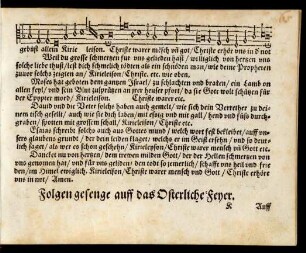 gebüst allein Kirie leison. Christe warer mẽsch vñ got / Christe erhör vns in d' not
Weil du grosse schmertzen für vns gelieden hast / williglich von hertzen uns
solche liebe thust / lest dich schmelich tödten als ein schnöden man / wie deine Propheten
zuuor solchs zeigten an / Kirieleison / Christe, etc. wie oben.
Moses hat geboten dem gantzen Jsrael / zu schlachten und braden / ein Lamb on
allen feyl / und sein Blut zusprützen an jrer heuser pfost / da sie Gott wolt schützen für
der Egypter mord / Kirieleison. Christe warer etc.
Dauid und die Veter solchs haben auch gemelt / wie sich dein Verrether zu deinen
tisch geselt / auch wie sie dich laden / mit essig und mit gall / hend und füss durch
graben / spotten mit grossem schall / Kirieleison / Christe etc.
Esaias schreibt solchs auch aus Gottes mund / welch wort fest bekleibet / auff unsern
glaubens grundt / der dein leiden klaget / welchs er im Geist ersehen / und so deutlich
saget / als wer es schon geschehn / Kirieleison / Christe warer mensch vñ Gott etc.
Danckt im von hertzen / dem trewen milden Gott / der der Hellen schmertzen von
uns genommen hat / und für uns gelidten den todt so jemerlich / schaffe vns heil und frieden /
im Himel ewiglich. Kirieleison / Christe warer mensch und Gott / Christe erhöre
uns in not / Amen.
Folgen gesenge auff das Osterliche Feyer.
K Auff